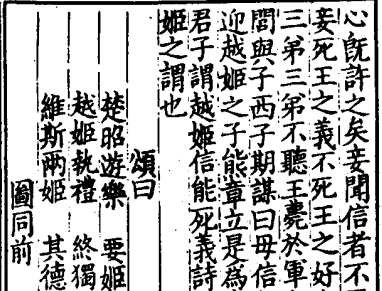 心既許之矣妾聞信者不
妾死王之義不死王之好
三弟三弟不聽王薨於軍
閭與子西子期謀曰母信
迎越姬之子熊章立是為
君子謂越姬信能死義詩
姬之謂也
頌曰
楚昭遊樂 要姬
越姬執禮 終獨
維斯兩姬 其德
圖同前